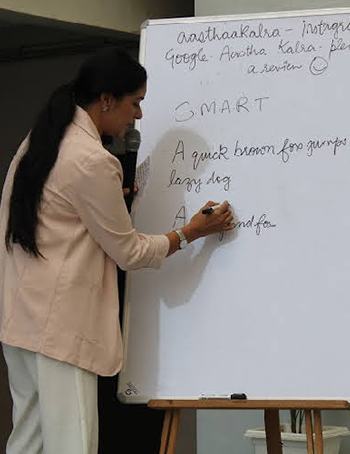 aasthaakalra - instagra
Google - Aastha Kalra - ple
a review ☺
SMART
A quick brown fox jumps
lazy dog
A